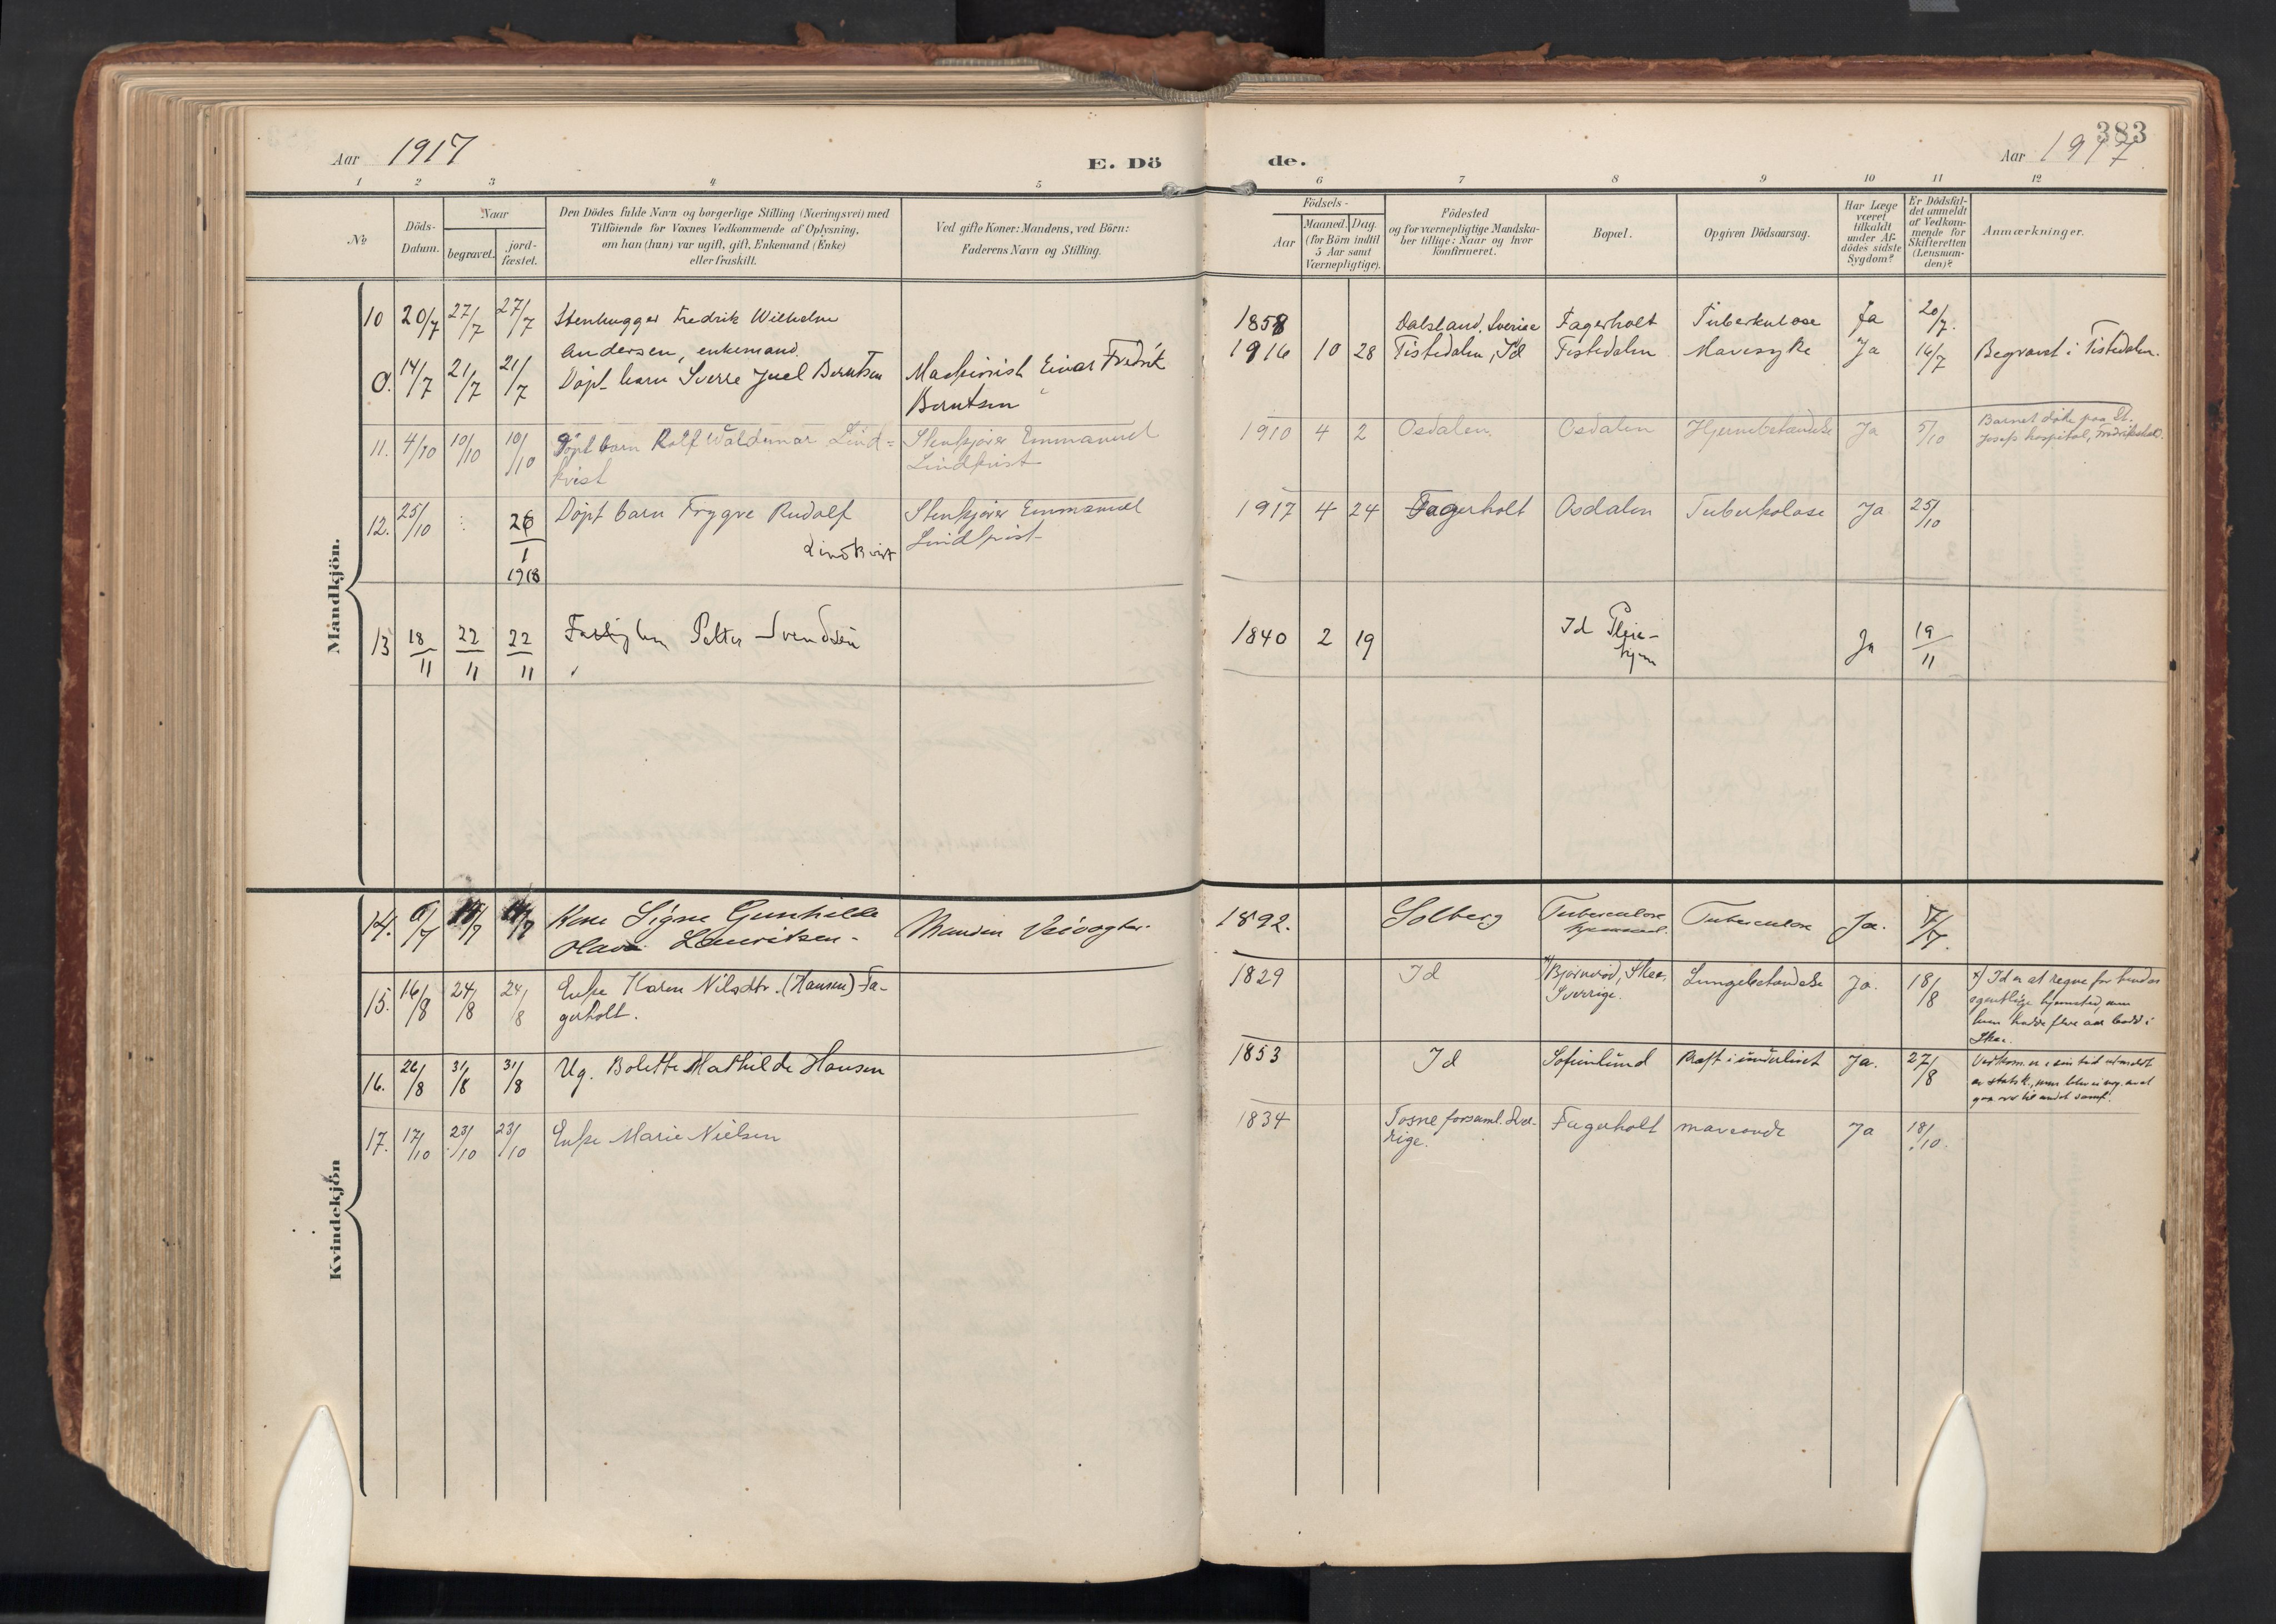 Aar 1917
E. Dö
de.
383
Aar 1917
1 2 3 4 5 6 7 8 9 10 11 12
No
Döds-
Datum.
Naar
begravet.
jord-
fæstet.
Den Dödes fulde Navn og borgerlige Stilling (Næringsvei) med
Tilföiende for Voxnes Vedkommende af Oplysning,
om han (hun) var ugift, gift, Enkemand (Enke)
eller fraskilt.
Ved gifte Koner: Mandens, ved Börn:
Faderens Navn og Stilling.
Födsels-
Aar
Maaned. Dag.
(for Börn indtil
5 Aar samt
Værnepligtige).
Födested
og for værnepligtige Mandska-
ber tillige: Naar og hvor
konfirmeret.
Bopæl.
Opgiven Dödsaarsag.
Har Læge
været
tilkaldt
under Af-
dödes sidste
Sygdom?
Er Dödsfal-
det anmeldt
af Vedkom-
mende for
Skifteretten
(Lensman-
den)?
Anmærkninger.
Mandkjön.
10 20/7 27/7 27/7 Stenhugger Fredrik Wilhelm
Andersen, enkemand.
1858 Dalsland, Sverige Fagerholt Tuberkulose Ja 20/7.
0. 14/7 21/7 21/7 Døpt barn Sverre Juel Berntsen Maskinist Einar Fredrik
Berntsen
1916 10 28 Tistedalen, Id Tistedalen Mavesyke Ja 16/7 Begravet i Tistedalen.
11. 4/10 10/10 10/10 Døpt barn Rolf Waldemar Lind=
kvist
Stenkjører Emmanuel
Lindkvist
1910 4 2 Osdalen. Osdalen Hjernebetændelse Ja 5/10 Barnet døde paa St.
Josefs hospital, Fredrikshald.
12. 25/10 26/1 1918 Døpt barn Trygve Rudolf
Lindkvist
Stenkjører Emmanuel
Lindkvist
1917 4 24 Fagerholt Osdalen Tuberkolose Ja 25/10
13 18/11 22/11 22/11 Fattiglem Petter Svendsen
1840 2 19 Id Pleie-
hjem
Ja 19/11
Kvindekjön
14. 6/7 14/7 Kone Signe Gunhilde
Olava Lauritsen - Manden Veivogter.
1892. Solberg Tuberculose
hjemmet.
Tuberculose Ja. 7/7.
15. 16/8 24/8 24/8 Enke Karen Nilsdtr. (Hansen) Fa-
gerholt.
1829 Id x) Bjørnerød, Skee,
Sverrige.
Lungebetændelse Ja. 18/8 x) Id er at regne for hendes
egentlige hjemsted, men
hun hadde flere aar bodd i
Skee.
16. 26/8 31/8 31/8 Ug. Bolette Mathilde Hansen
1853 Id Sofienlund Kræft i underlivet Ja. 27/8 Vedkom. er i sin tid utmeldt
av statsk., men blev ei
gaa over til andet samf.
17. 17/10 23/10 23/10 Enke Marie Nielsen
1834 Tosne forsaml. Sver-
rige.
Fagerholt maveonde Ja 18/10.